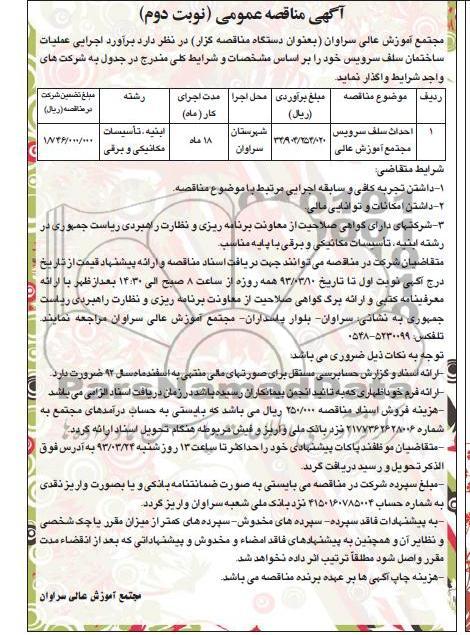 آگهی مناقصه عمومی (نوبت دوم)
مجتمع آموزش عالی سراوان (بعنوان دستگاه مناقصه گزار) در نظر دارد برآورد اجرایی عملیات
ساختمان سلف سرویس خود را بر اساس مشخصات و شرایط کلی مندرج در جدول به شرکت های
واجد شرایط واگذار نماید.
ردیف موضوع مناقصه مبلغ برآوردی (ریال) محل اجرا مدت اجرای کار (ماه) رشته مبلغ تضمین شرکت در مناقصه (ریال)
۱ احداث سلف سرویس مجتمع آموزش عالی ۳۴/۹۰۴/۲۵۴/۰۲۰ شهرستان سراوان ۱۸ ماه ابنیه، تأسیسات مکانیکی و برقی ۱/۷۴۶/۰۰۰/۰۰۰
شرایط متقاضی:
۱-داشتن تجربه کافی و سابقه اجرایی مرتبط با موضوع مناقصه.
۲-داشتن امکانات و توانایی مالی
۳-شرکتهای دارای گواهی صلاحیت از معاونت برنامه ریزی و نظارت راهبردی ریاست جمهوری در
رشته ابنیه، تأسیسات مکانیکی و برقی با پایه مناسب.
متقاضیان شرکت در مناقصه می توانند جهت دریافت اسناد مناقصه و ارائه پیشنهاد قیمت از تاریخ
درج آگهی نوبت اول تا تاریخ ۹۳/۰۳/۱۰ همه روزه از ساعت ۸ صبح الی ۱۴:۳۰ بعدازظهر با ارائه
معرفینامه کتبی و ارائه برگ گواهی صلاحیت از معاونت برنامه ریزی و نظارت راهبردی ریاست
جمهوری به نشانی: سراوان- بلوار پاسداران- مجتمع آموزش عالی سراوان مراجعه نمایند.
تلفکس: ۵۲۳۰۰۹۹-۰۵۴۸
توجه به نکات ذیل ضروری می باشد:
-ارائه اسناد و گزارش حسابرسی مستقل برای صورتهای مالی منتهی به اسفندماه سال ۹۲ ضرورت دارد.
-ارائه فرم خوداظهاری که به تائید انجمن پیمانکاران رسیده باشد در زمان دریافت اسناد الزامی می باشد
-هزینه فروش اسناد مناقصه ۲۵۰/۰۰۰ ریال می باشد که بایستی به حساب درآمدهای مجتمع به
شماره ۲۱۷۷۳۶۲۶۲۸۰۰۶ نزد بانک ملی واریز و فیش مربوطه هنگام تحویل اسناد ارائه گردد.
-متقاضیان موظفند پاکات پیشنهادی خود را حداکثر تا ساعت ۱۳ روز شنبه ۹۳/۰۳/۲۴ به آدرس فوق
الذکر تحویل و رسید دریافت گردد.
-مبلغ سپرده شرکت در مناقصه می بایستی به صورت ضمانتنامه بانکی و یا بصورت واریز نقدی
به شماره حساب ۴۱۵۰۱۶۰۷۸۵۰۰۴ نزد بانک ملی شعبه سراوان واریز گردد.
-به پیشنهادات فاقد سپرده- سپرده های مخدوش- سپرده های کمتر از میزان مقرر یا چک شخصی
و نظایر آن و همچنین به پیشنهادهای فاقد امضاء و مخدوش و پیشنهاداتی که بعد از انقضاء مدت
مقرر واصل شود مطلقاً ترتیب اثر داده نخواهد شد.
-هزینه چاپ آگهی ها بر عهده برنده مناقصه می باشد.
مجتمع آموزش عالی سراوان
ParsNamadData